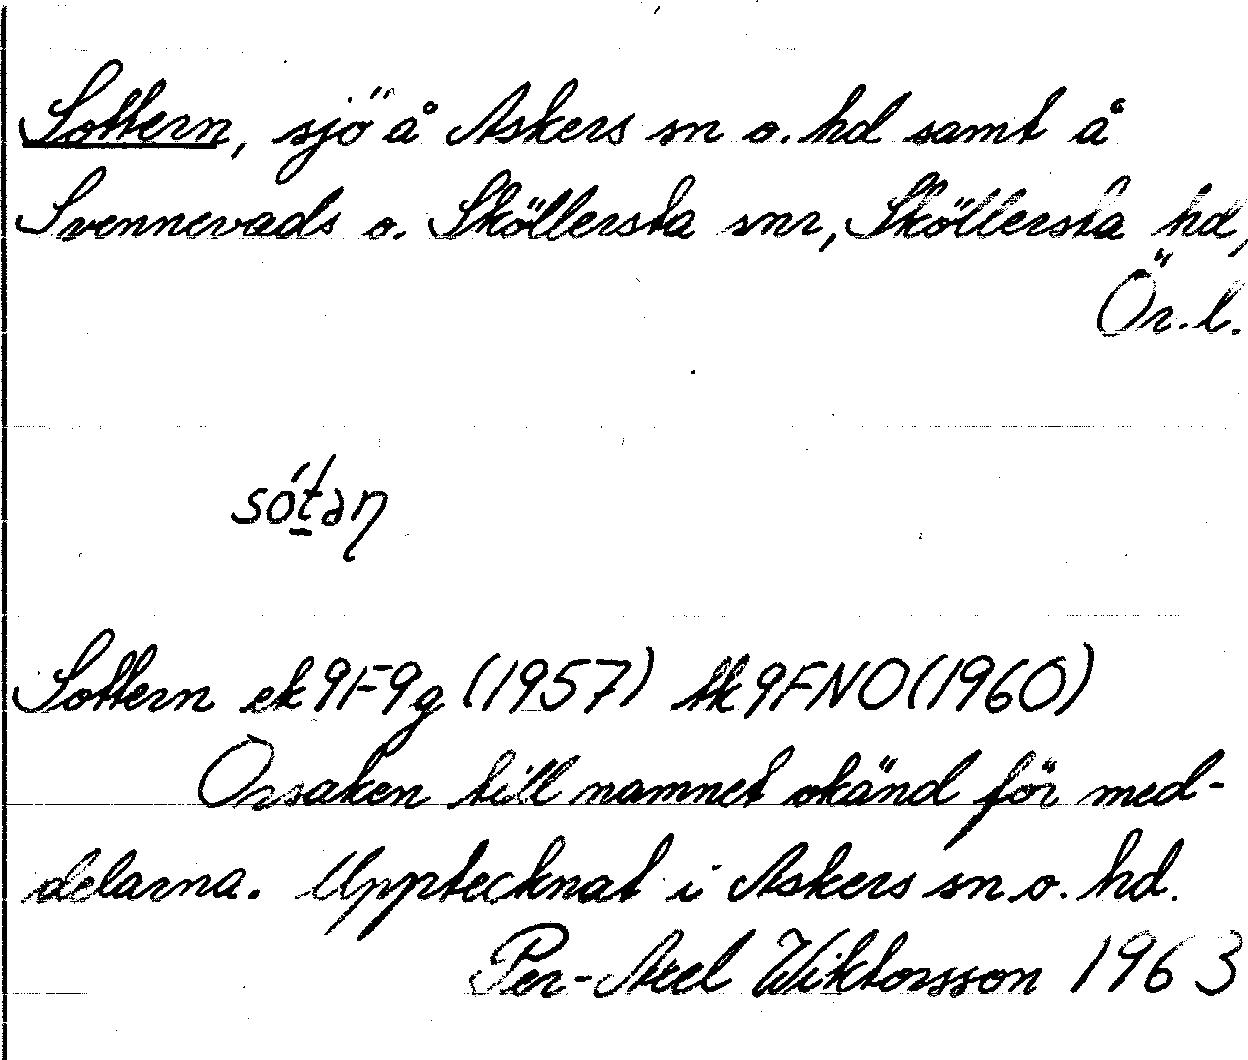 Sottern, sjö å Askers sn o. hd samt å
Svennevads o. Sköllersta snr, Sköllersta hd,
Ör. l.
sót̠əη
Sottern ek 9F9g (1957) tk 9FNO (1960)
Orsaken till namnet okänd för med-
delarna. Upptecknat i Askers sn o. hd.
Per-Axel Wiktorsson 1963